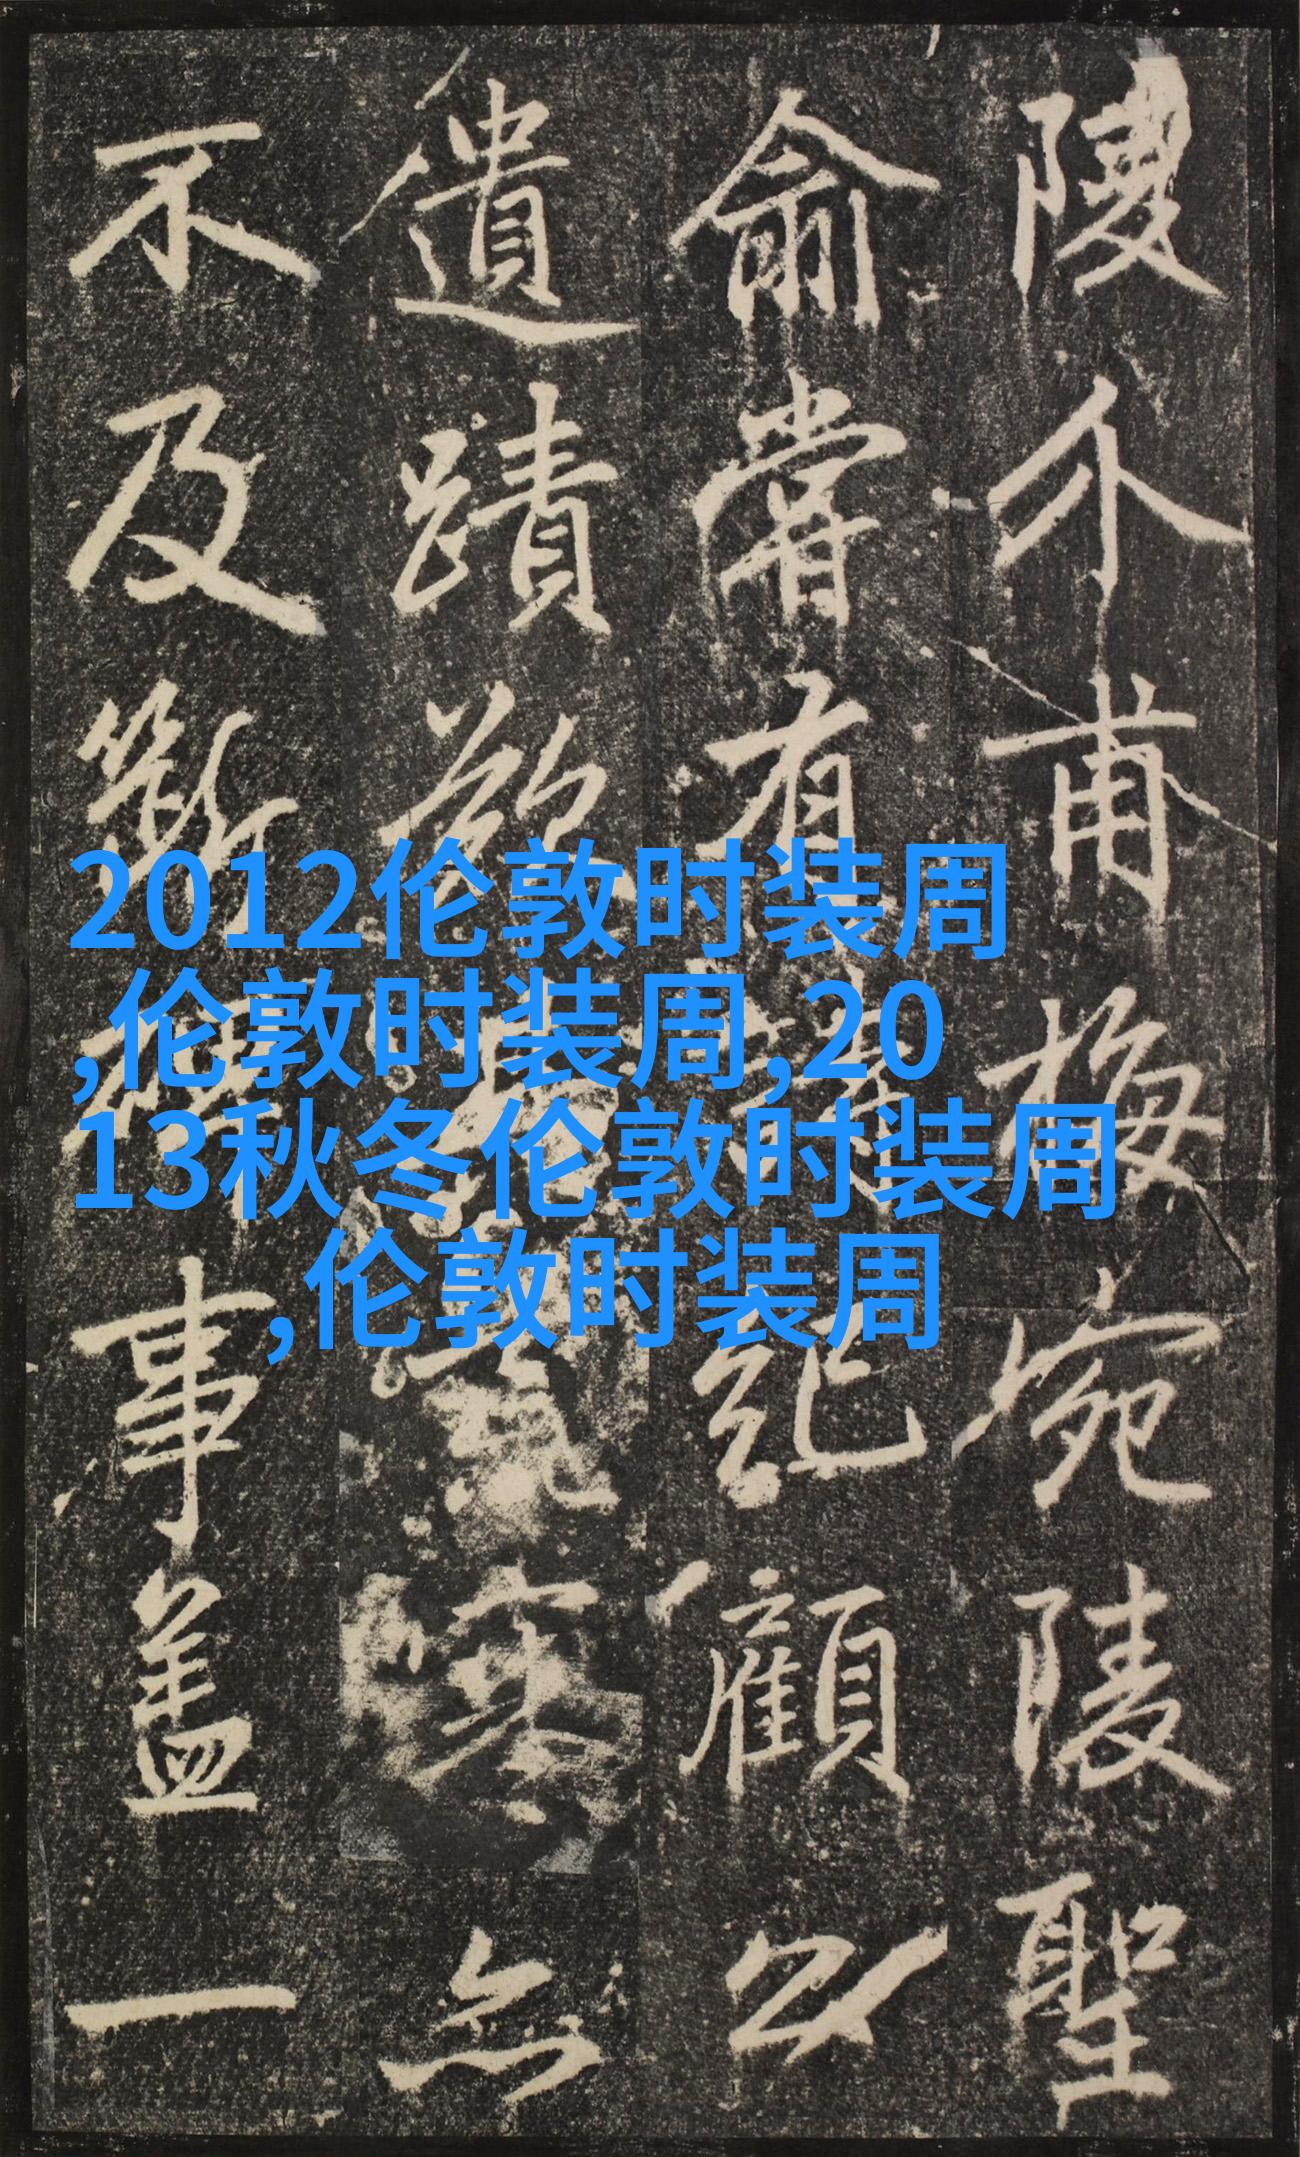 陵介甫梅宛陵聖
俞嘗有
紀顧以
遺蹟
無
不及斷
事蓋一
2012伦敦时装周
,伦敦时装周,20
13秋冬伦敦时装周
,伦敦时装周